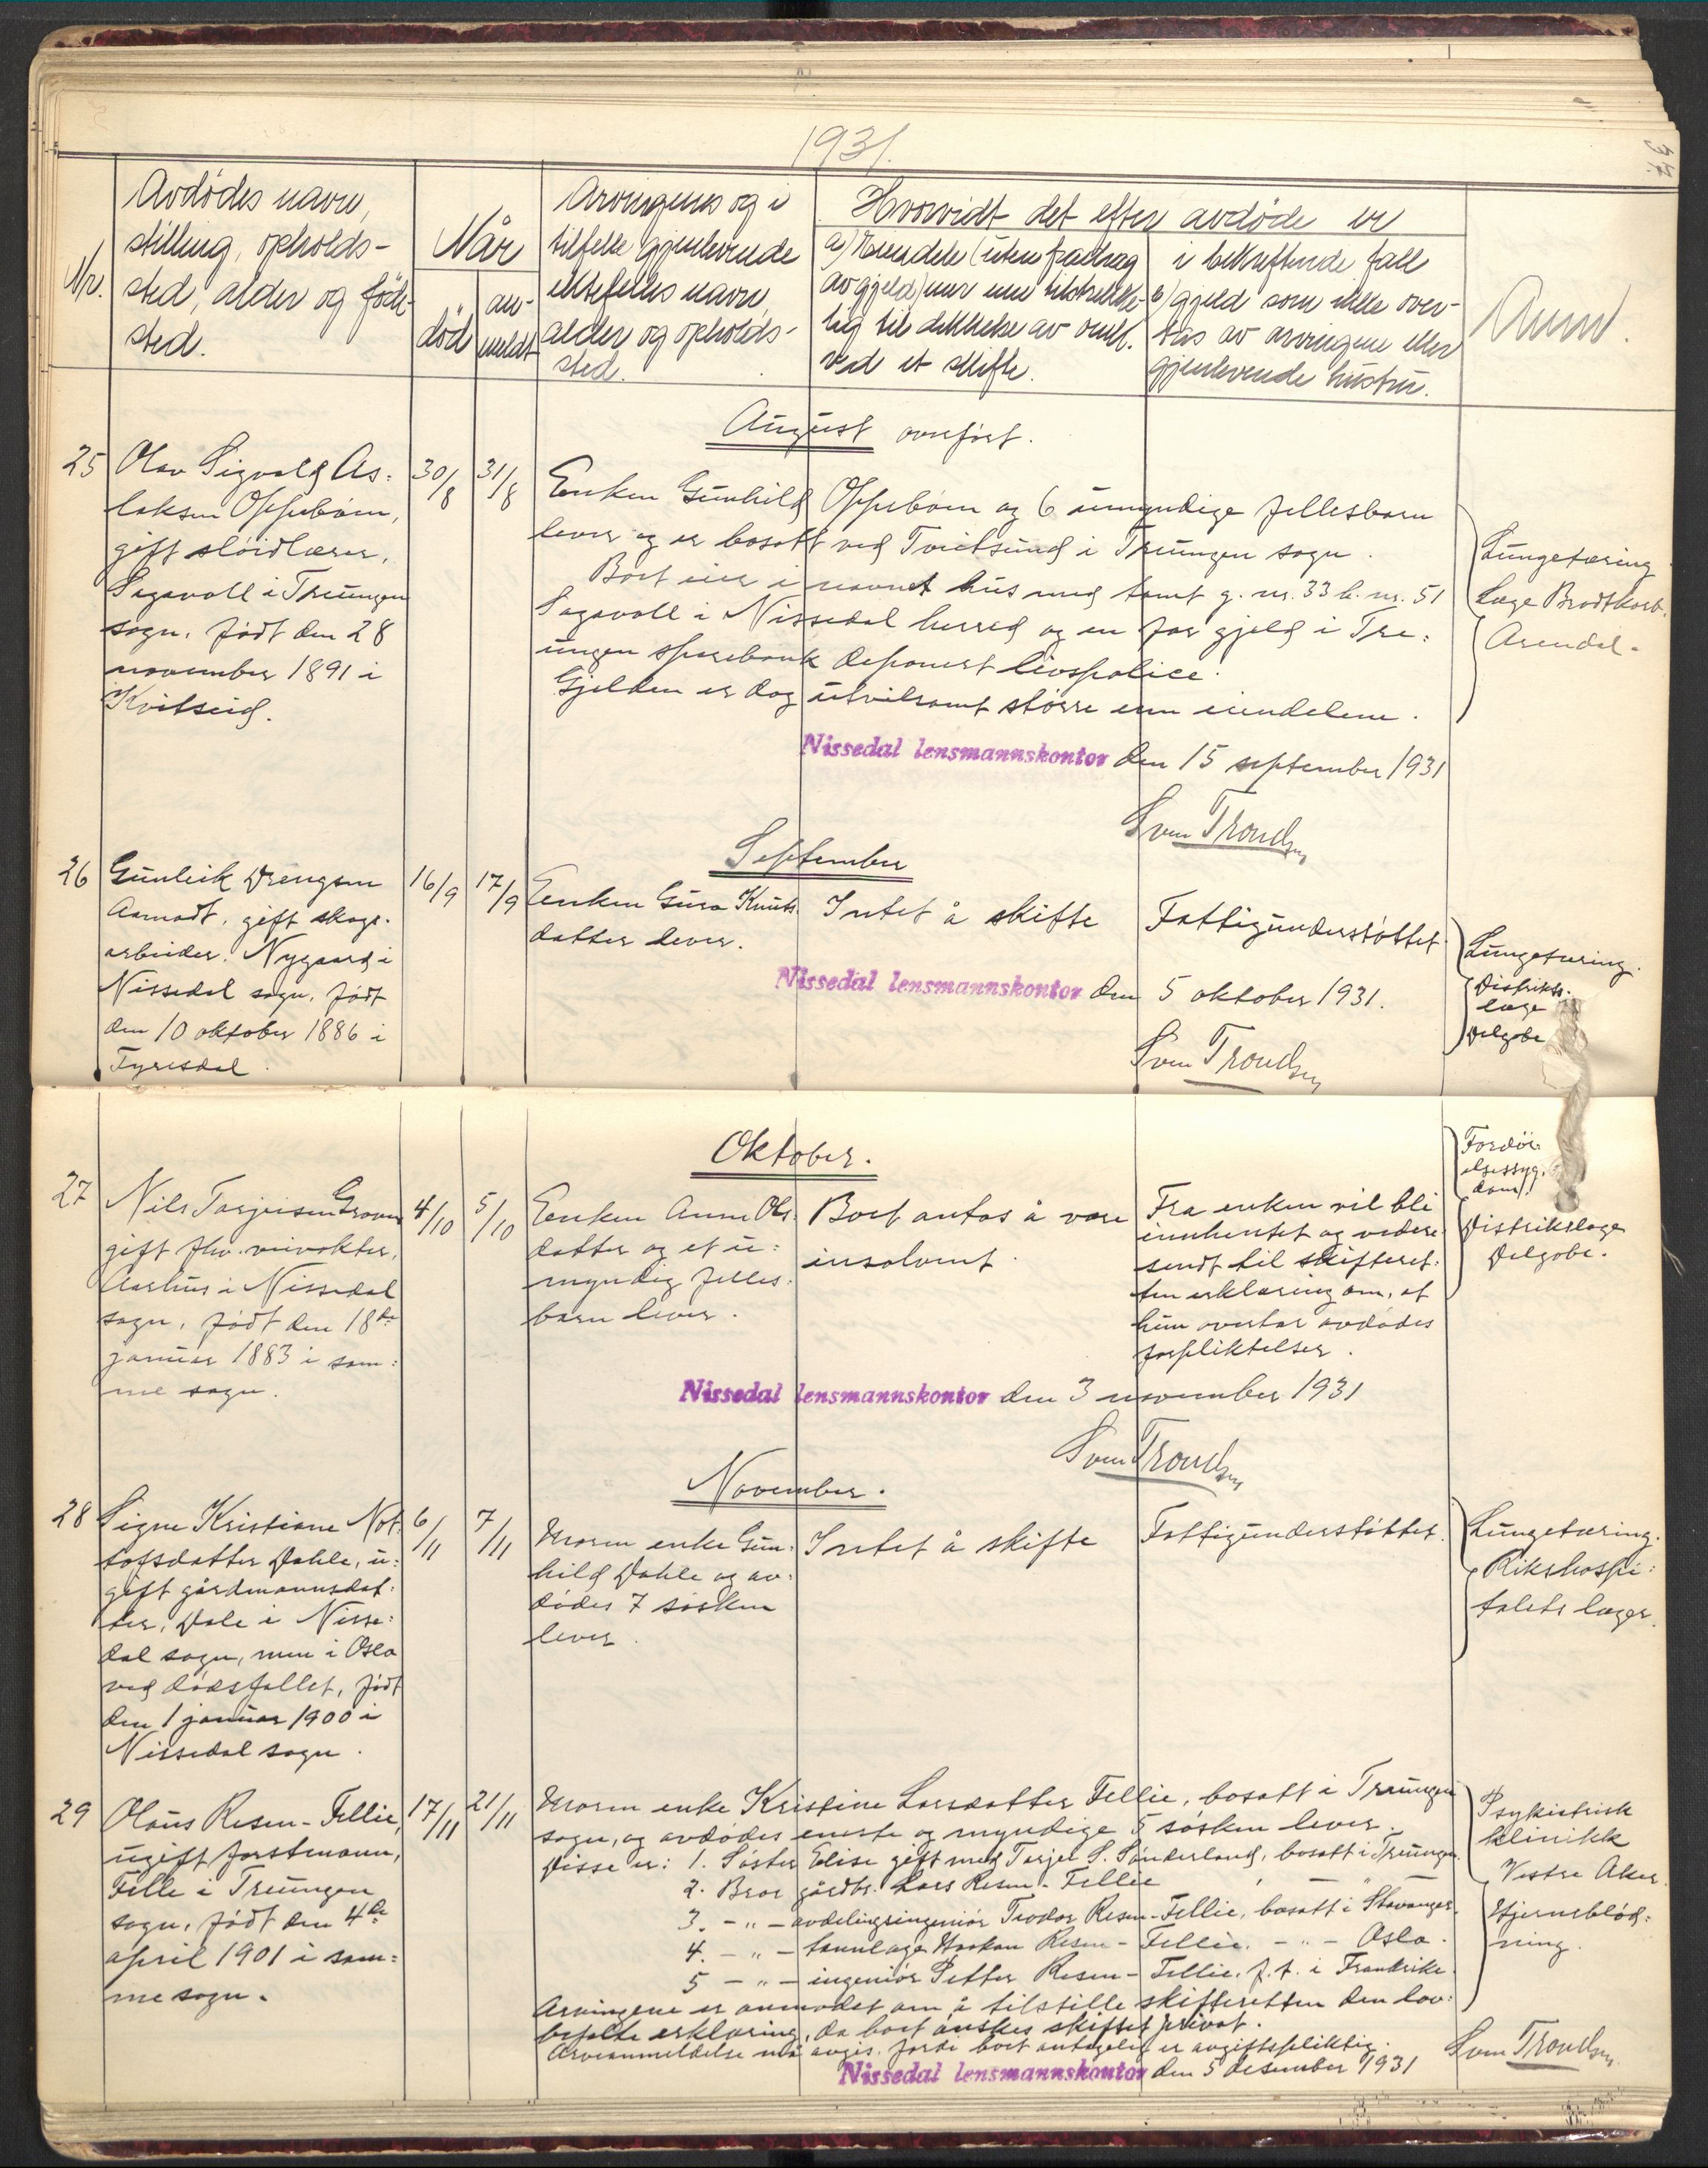 1931.
Nr.
Avdödes navn,
stilling, opholds-
sted, alder og föde-
sted.
Når
död
an-
meldt
Arvingenes og i
tilfelle gjenlevende
ektefelles navn,
alder og opholds-
sted.
Hvorvidt det efter avdöde er
a) Eiendele (uten fradrag
av gjeld) mer enn tilstrekke-
lig til dekkelse av omk.
ved et skifte.
i bekreftende fall
b) gjeld som ikke over-
tas av arvingene eller
gjenlevende hustru.
Anm.
August overført.
25
Olav Sigvald As-
laksen Oppebøen,
gift sløidlærer,
Sagavoll i Treungen
sogn, født den 28
november 1891 i
Kvitseid.
30/8
31/8
Enken Gunhild Oppebøen og 6 umyndige fellesbarn
lever og er bosatt ved Tveitsund i Treungen sogn.
Boet eier i navnet hus med tomt g. nr. 33 b. nr. 51
Sagavoll i Nissedal herred og en for gjeld i Tre-
ungen sparebank deponert livspolice.
Gjelden er dog utvilsomt større enn eiendelene.
Lungetæring
Læge Brodtkorb.
Arendal.
Nissedal lensmannskontor den 15 september 1931
Sven Trondsen
September
26
Gunleik Drengsen
Aamodt, gift skogs-
arbeider. Nygaard i
Nissedal sogn, født
den 10 oktober 1886 i
Fyresdal.
16/9
17/9
Enken Guro Knuts-
datter lever.
Intet å skifte
Fattigunderstøttet
Lungetæring.
Distrikts-
læge
Delgobe
Nissedal lensmannskontor den 5 oktober 1931.
Sven Trondsen
Oktober.
27
Nils Tarjeisen Groven
gift fhv. veivokter,
Aarhus i Nissedal
sogn, født den 18de
januar 1883 i sam-
me sogn.
4/10
5/10
Enken Anne Ols-
datter og et u-
myndig felles-
barn lever.
Boet antas å være
insolvent.
Fra enken vil bli
innhentet og videre-
sendt til skifteret-
ten erklæring om, at
hun overtar avdødes
forpliktelser.
Fordøi-
elsessyg-
dom
Distriktslæge
Delgobe.
Nissedal lensmannskontor den 3 november 1931
Sven Trondsen
November.
28
Signe Kristiane Not-
tofsdatter Dahle, u-
gift gårdmannsdat-
ter, Dale i Nisse-
dal sogn, men i Oslo
ved dødsfallet, født
den 1 januar 1900 i
Nissedal sogn.
6/11
7/11
Moren enke Gun-
hild Dahle og av-
dødes 7 søsken
lever.
Intet å skifte
Fattigunderstøttet.
Lungetæring.
Rikshospi-
talets læger.
29
Olaus Resen-Fellie,
ugift forstmann,
Felle i Treungen
sogn, født den 4de
april 1901 i sam-
me sogn.
17/11
21/11
Moren enke Kristine Larsdatter Fellie, bosatt i Treungen
sogn, og avdødes eneste og myndige 5 søsken lever.
Disse er: 1. Søster Elise gift med Tarjei S. Sønderland, bosatt i Treungen.
2. Bror gårdbr. Lars Resen-Fellie
3. - " - avdelingsingeniør Teodor Resen-Fellie, bosatt i Stavanger.
4. - " - tannlæge Haakon Resen-Fellie. - " - Oslo.
5 - " - ingeniør Petter Resen-Fellie, f.t. i Frankrike.
Arvingene er anmodet om å tilstille skifteretten den lov-
befalte erklæring, da boet ønskes skiftet privat.
Arveanmeldelse må avgis, fordi boet antagelig er avgiftspliktig.
Psykiatrisk
klinikk
Vestre Aker.
Hjerneblød-
ning.
Nissedal lensmannskontor den 5 desember 1931
Sven Trondsen